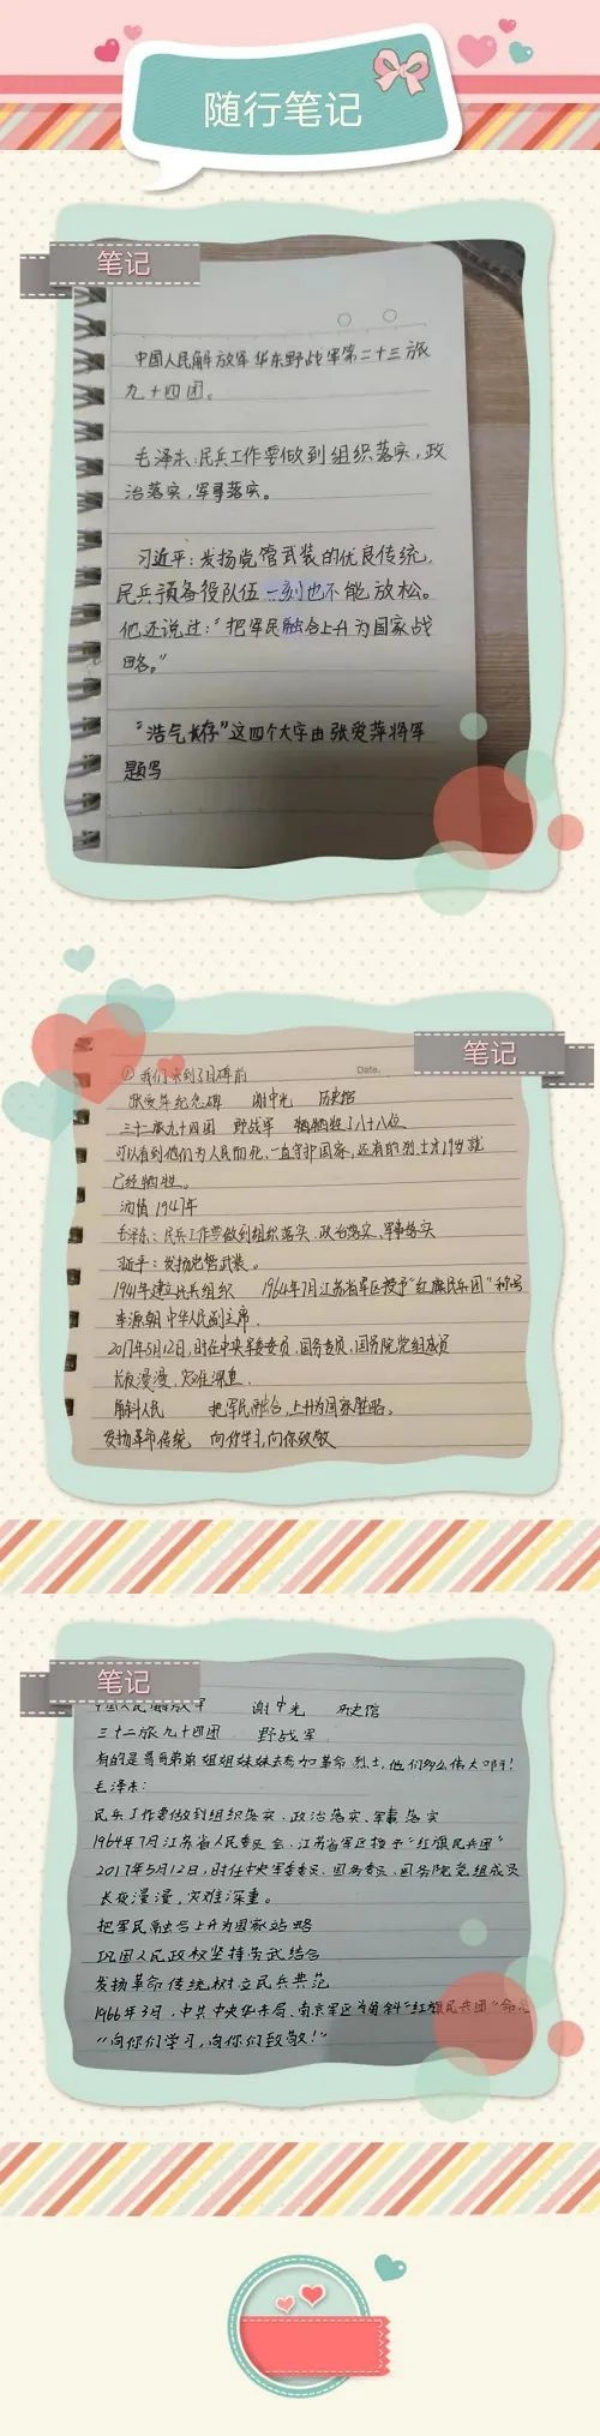 随行笔记
笔记
中国人民解放军华东野战军第二十三旅
九十四团。
毛泽东:民兵工作要做到组织落实,政
治落实,军事落实。
习近平:发扬党管武装的优良传统,
民兵预备役队伍一刻也不能放松。
他还说过:“把军民融合上升为国家战
略。”
“浩气长存”这四个大字由张爱萍将军
题写
笔记
Date.
①我们来到了月碑前
张爱萍纪念碑 谢中光 历史馆
三十二旅九十四团 野战军 牺牲了八十八位
可以看到他们为人民而死,一直守护国家,还有的烈士才19岁就
已经牺牲。
1947年
毛泽东:民兵工作要做到组织落实、政治落实、军事落实
习近平:发扬党管武装。
1941年建立民兵组织 1964年7月江苏省军区授予“红旗民兵团”称号
李源朝 中华人民副主席.
2017年5月12日,时任中央军委委员、国务委员、国务院党组成员
长夜漫漫,灾难深重.
角斜人民 把军民融合,上升为国家战略。
发扬革命传统 向你学习,向你致敬
笔记
中国人民解放军 谢中光 历史馆
三十二旅九十四团 野战军
有的是哥哥弟弟姐姐妹妹去参加革命烈士,他们多么伟大啊!
毛泽东:
民兵工作要做到组织落实、政治落实、军事落实
1964年7月江苏省人民委员会、江苏省军区授予“红旗民兵团”
2017年5月12日,时任中央军委委员、国务委员、国务院党组成员
长夜漫漫,灾难深重。
把军民融合上升为国家战略
巩固人民政权坚持劳武结合
发扬革命传统树立民兵典范
1966年3月,中共中央华东局、南京军区为角斜“红旗民兵团”命名
“向你们学习,向你们致敬!”